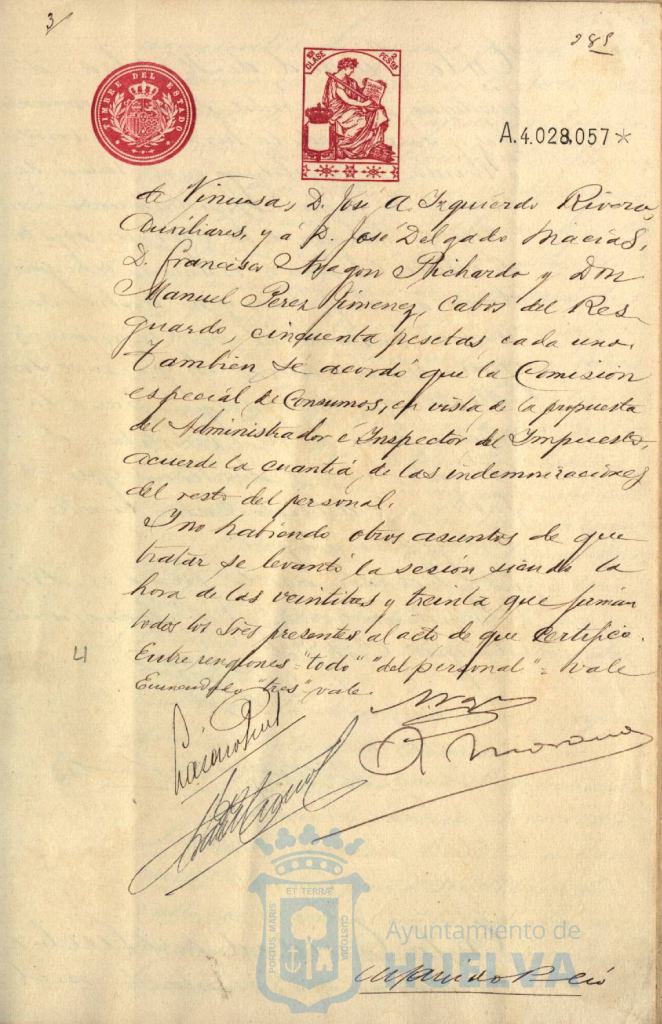 3
285
TIMBRE DEL ESTADO
CLASE
2 PESTAS
A.4.028,057*
de Vinuesa, D. José A. Izquierdo Rivera,
Auxiliares, y á D. José Delgado Macias,
D. Francisco Aragon Pichardo y Don
Manuel Perez Jimenez, Cabos del Res-
guardo, cincuenta pesetas cada uno.
Tambien se acordó que la Comisión
especial de Consumos, en vista de la propuesta
del Administrador é Inspector del Impuesto,
acuerde la cuantiá de las indemnizaciones
del resto del personal.
Y no habiendo otros asuntos de que
tratar se levantó la sesión siendo la
hora de las veintitres y treinta que firman
todos los Sres presentes al acto de que certifico.
Entre renglones "todo" "del personal" = vale
Enmendado "tres" vale.
4
R. Moreno
PORTUS MARIS
ET TERRÆ
CUSTODIA
Ayuntamiento de
HUELVA